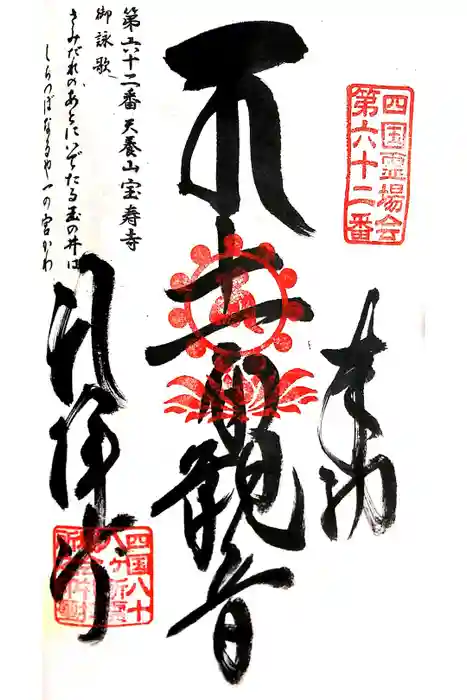 四国霊場会
第六十二番
奉納
十一面観音
第六十二番 天養山宝寿寺
御詠歌
さみだれのあとにいでたる玉の井は
しらつぼなるや一の宮かわ
礼拝所
四国八十
八ヶ所霊